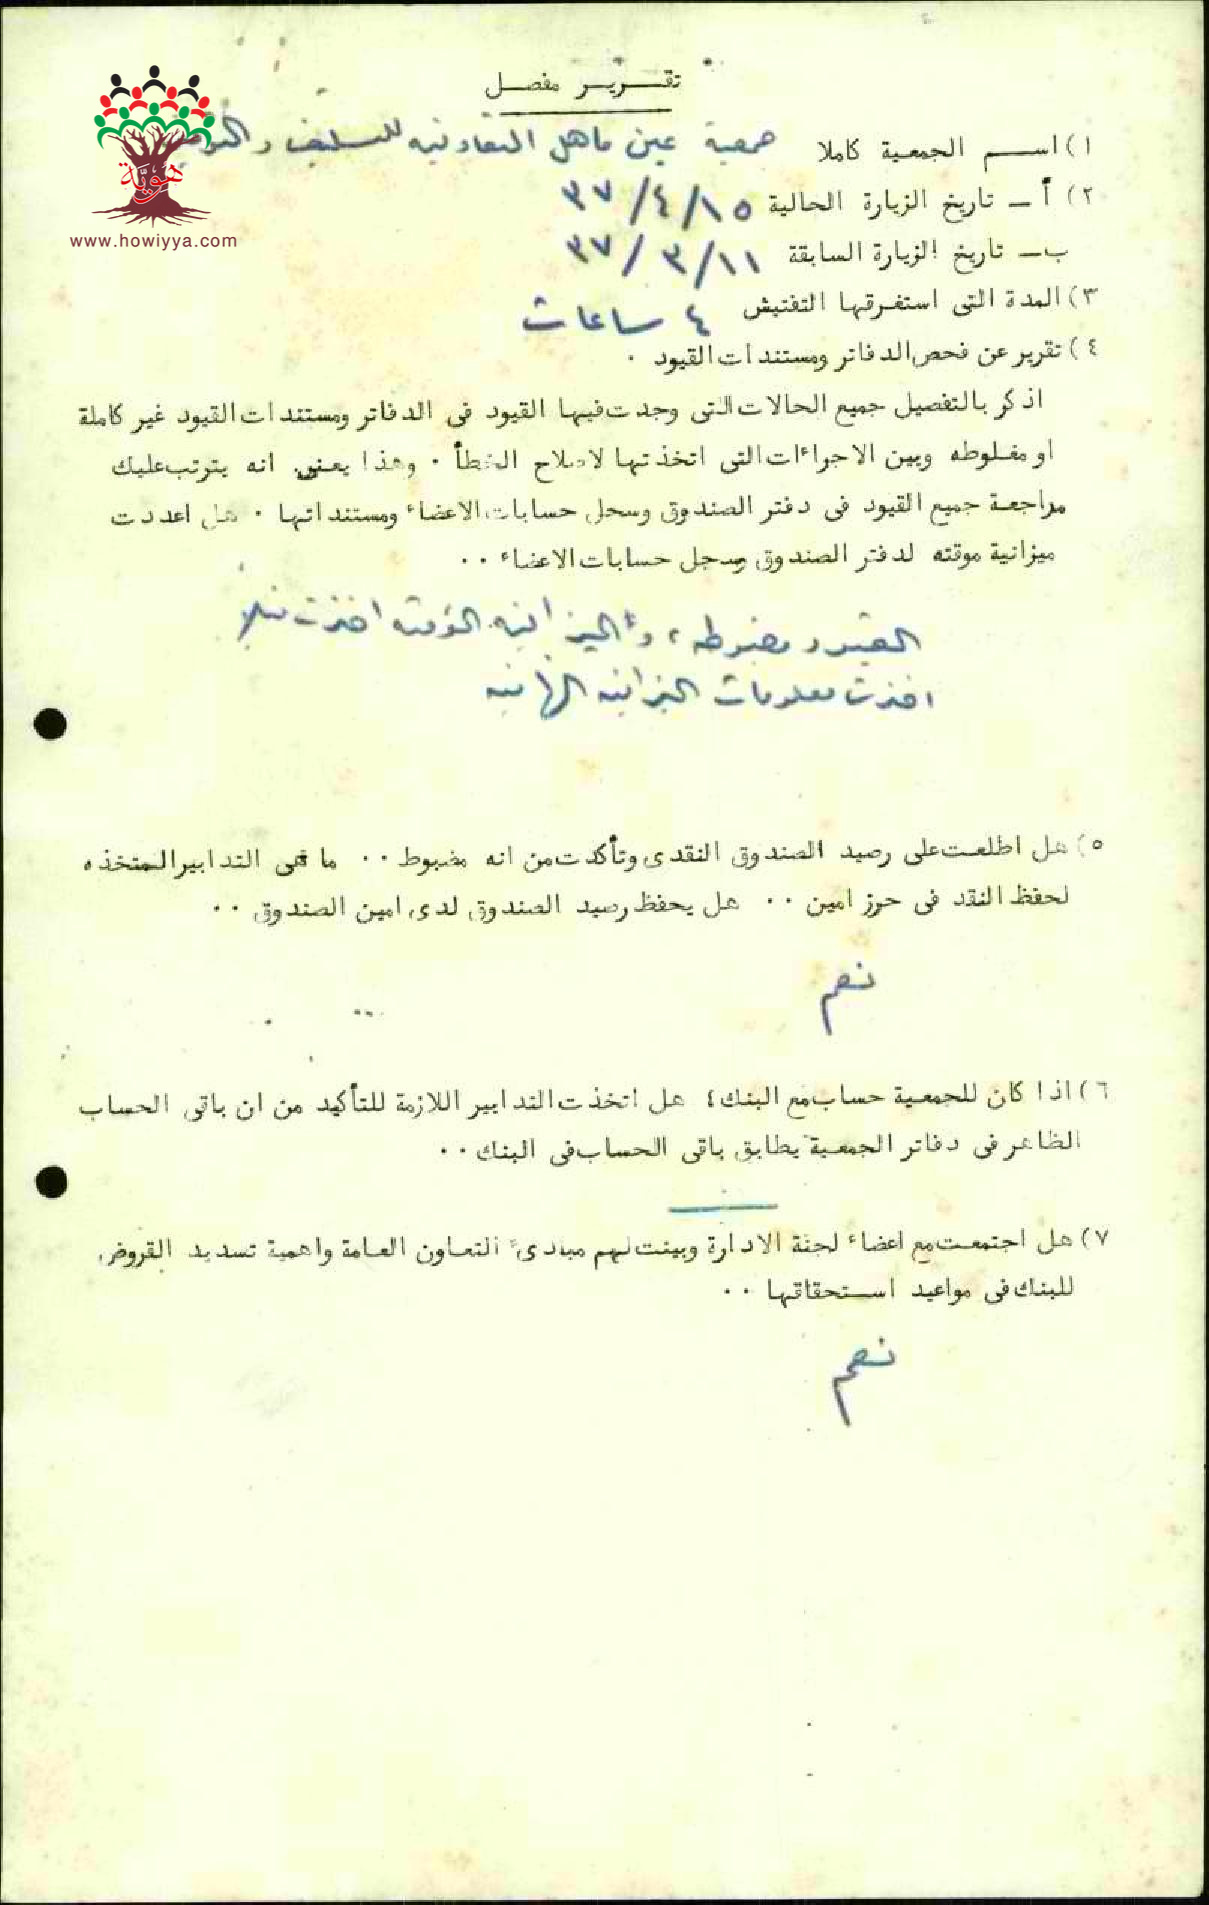 تقـــريـــر مفصـــل
١) اســـم الجمعية كاملا جمعية عين ماهل التعاونيه للتسليف والتوفير
٢) أ ـ تاريخ الزيارة الحالية ١٥/٤/٣٧
ب ـ تاريخ الزيارة السابقة ١١/٣/٣٧
٣) المدة التى استغرقها التفتيش ٤ ساعات
٤) تقرير عن فحص الدفاتر ومستندات القيود .
اذكر بالتفصيل جميع الحالات التى وجدت فيها القيود فى الدفاتر ومستندات القيود غير كاملة
او مغلوطه وبين الاجراءات التى اتخذتها لاصلاح الخطأ . وهذا يعنى انه يترتب عليك
مراجعة جميع القيود فى دفتر الصندوق وسجل حسابات الاعضاء ومستنداتها . هل اعددت
ميزانية موقته لدفتر الصندوق وسجل حسابات الاعضاء . .
القيود مضبوطه، والميزانيه المؤقته اخذت
اخذت معلومات الميزانيه النهائيه
٥) هل اطلعت على رصيد الصندوق النقدى وتأكدت من انه مضبوط . . ما هى التدابير المتخذه
لحفظ النقد فى حرز امين . . هل يحفظ رصيد الصندوق لدى امين الصندوق . .
نعم
٦) اذا كان للجمعية حساب مع البنك ٤ هل اتخذت التدابير اللازمة للتأكيد من ان باقى الحساب
الظاهر فى دفاتر الجمعية يطابق باقى الحساب فى البنك . .
٧) هل اجتمعت مع اعضاء لجنة الادارة وبينت لهم مبادىء التعاون العامة واهمية تسديد القروض
للبنك فى مواعيد اســتحقاقها . .
نعم
هوية
www.howiyya.com